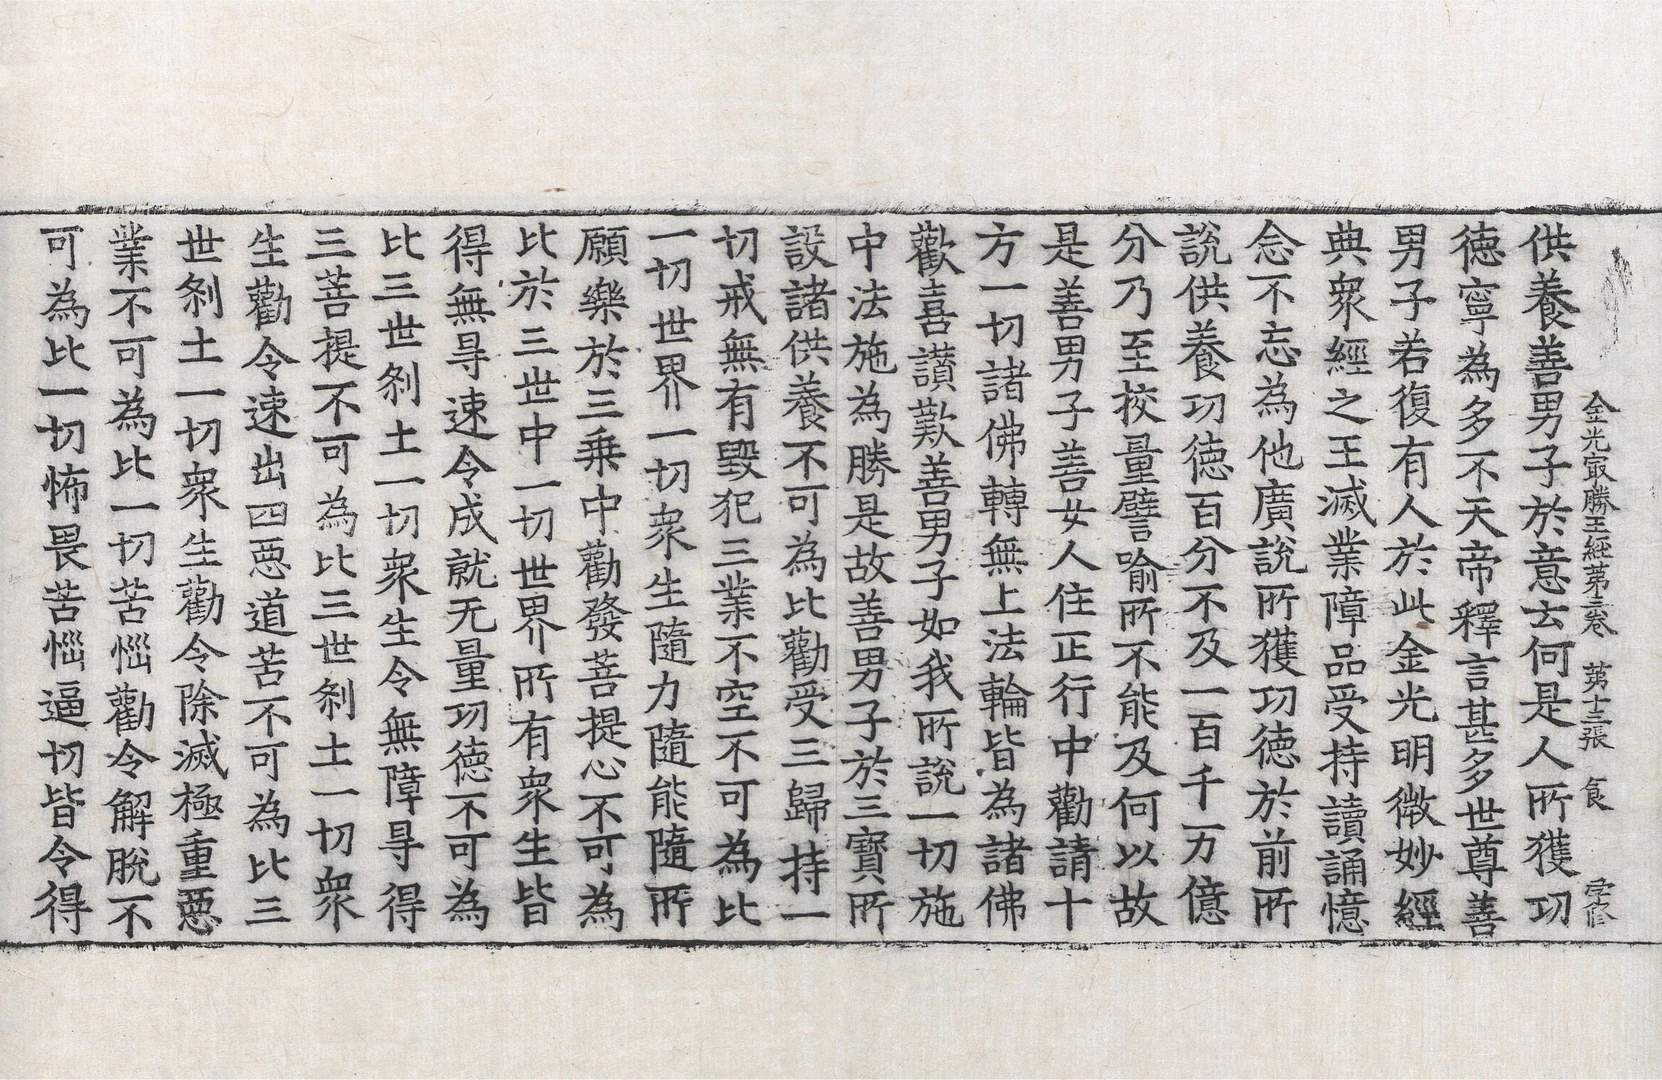 金光冣勝王経第三卷　第十三張　食
供養善男子於意云何是人所獲功
德寧為多不天帝釋言甚多世尊善
男子若復有人於此金光明微妙經
典衆經之王滅業障品受持讀誦憶
念不忘為他廣說所獲功德於前所
說供養功德百分不及一百千万億
分乃至挍量譬喻所不能及何以故
是善男子善女人住正行中勸請十
方一切諸佛轉無上法輪皆為諸佛
歡喜讃歎善男子如我所說一切施
中法施為勝是故善男子於三寶所
設諸供養不可為比勸受三歸持一
切戒無有毀犯三業不空不可為比
一切世界一切衆生隨力隨能隨所
願樂於三乘中勸發菩提心不可為
比於三世中一切世界所有衆生皆
得無㝵速令成就无量功德不可為
比三世刹土一切衆生令無障㝵得
三菩提不可為比三世刹土一切衆
生勸令速出四惡道苦不可為比三
世刹土一切衆生勸令除滅極重惡
業不可為比一切苦惱勸令解脫不
可為比一切怖畏苦惱逼切皆令得